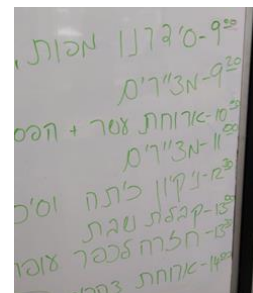 9:00-סידרנו מפות,
9:20-מצ״רים
10:20-ארוחת עשר + הפס
11:00-מצ״רים
12:30-ניקיון כיתה וסיכ
13:00-קבלת שבת
13:30-חזרה לכפר עופר
14:00-ארוחת